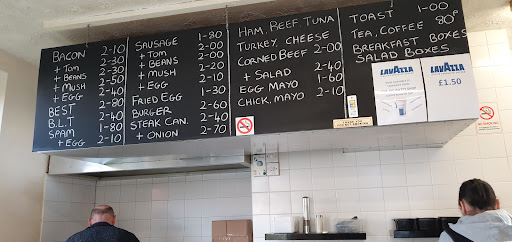 BACON 2-10
+ TOM 2-30
+ BEANS 2-30
+ MUSH 2-50
+ EGG 2-40
BEST 2-80
B.L.T 2-40
SPAM 1-80
+ EGG 2-10
SAUSAGE 1-80
+ TOM 2-00
+ BEANS 2-00
+ MUSH 2-20
+ EGG 2-10
FRIED EGG 1-30
BURGER 2-60
STEAK CAN. 2-40
+ ONION 2-70
HAM, BEEF, TUNA
TURKEY, CHEESE
CORNED BEEF 2-00
+ SALAD 2-40
EGG MAYO 1-60
CHICK, MAYO 2-10
TOAST 1-00
TEA, COFFEE 80P
BREAKFAST BOXES
SALAD BOXES
LAVAZZA
LAVAZZA
£1.50